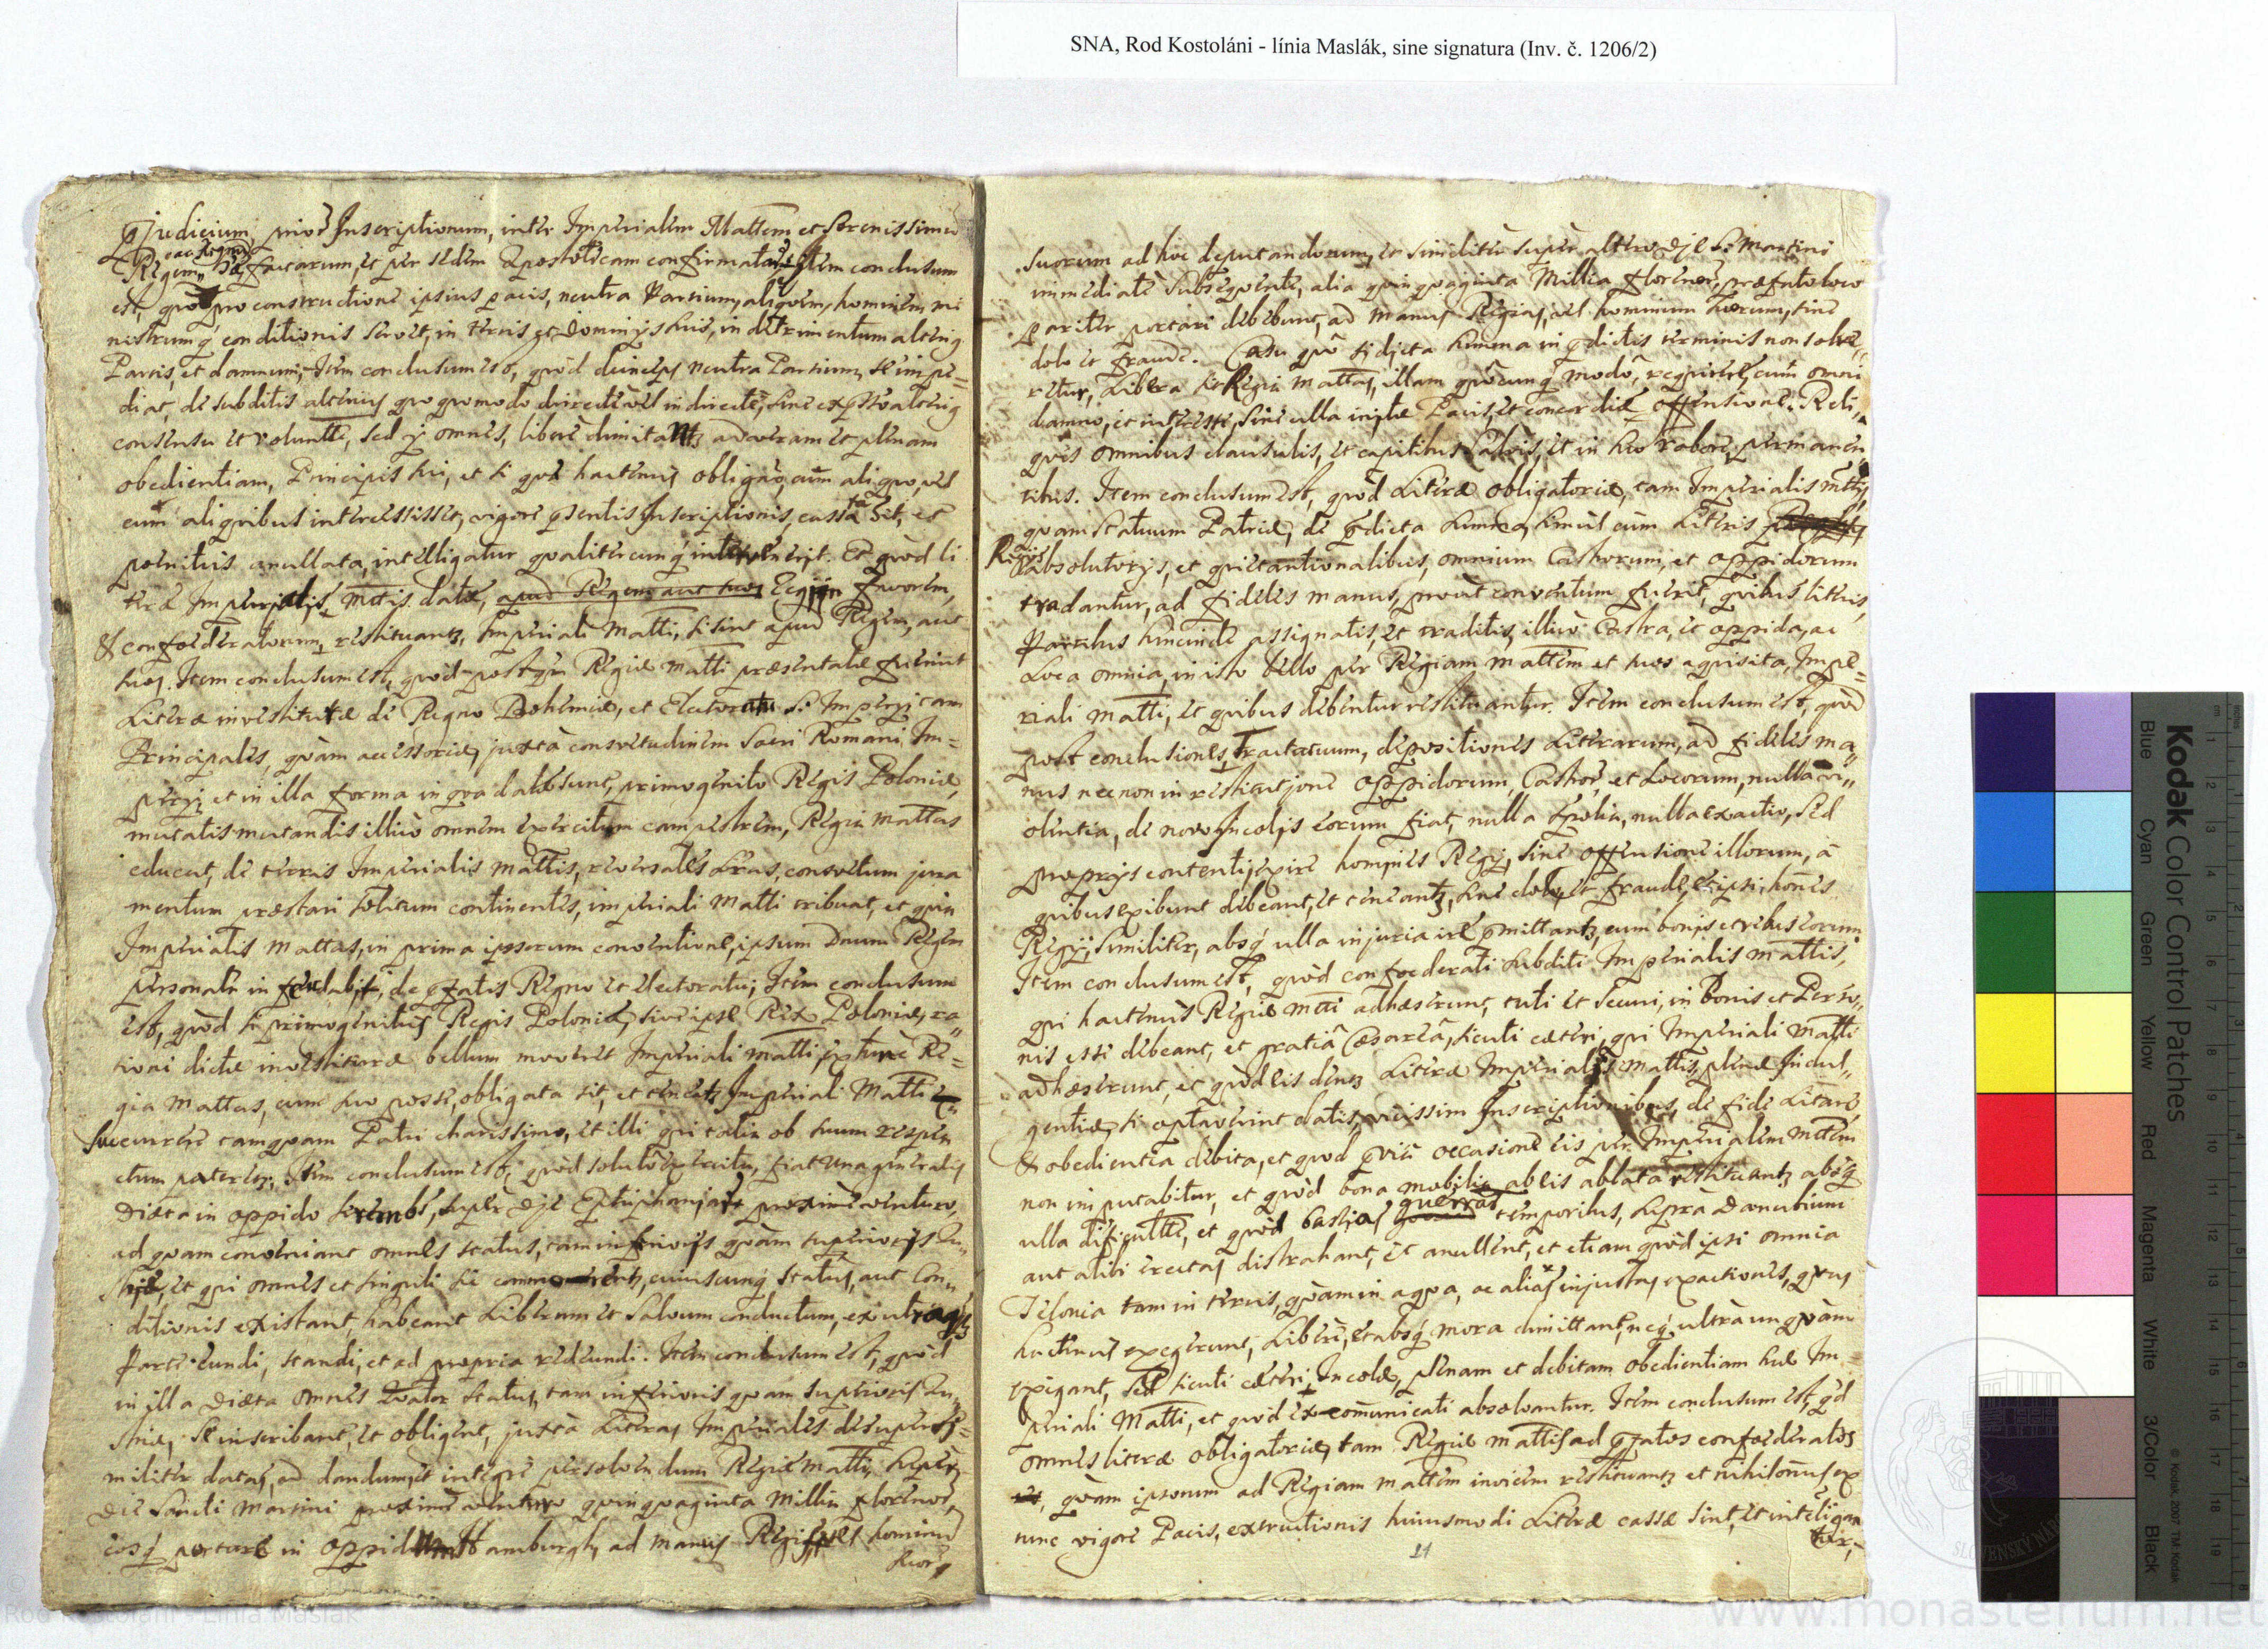 SNA, Rod Kostoláni - línia Maslák, sine signatura (Inv. č. 1206/2)
pjudicium, prior Inscriptionum, inter Imperialem Mattem et Serenissimū
ac Regna
Regem, factarum, et per sedem Apostolicam confirmatar. Item conclusum
est, quod pro constructione ipsius pacis, neutra Partium, aliquem, hominem, mi
nistrumq conditionis servet, in terris et Dominijs suis, in detrimentum alterig
Partis, et damnum; Item conclusum est, quod deinceps neutra Partium se impe=
diat, de subditis alterius quoquomodo directe vel indirecte, sine expsso alterig
consensu et voluntte, sed ij omnes, libere dimitantz ad veram et plenam
obedientiam, Principis sui, et si qua hactenus obligao, cum aliquo, vel
cum aliquibus intercessisset, vigore psentis Inscriptionis, cassa sit, et
penitus anullata, intelligatur qualitercunq intervenerit. Et quod li
teræ Imperialis Mttis datæ, apud Regem aut suos Regijn favorem,
& confoederatorum, restituantz, Imperiali Matti, si sint apud Regem, aut
suos. Item conclusum est, quod postqm Regiæ Matti præsentatæ fuerint
Literæ investituræ de Regno Bohemiæ, et Electoratu S. Imperij tam
Principales, quam accessoriæ, juxta consvetudinem Sacri Romani Im=
perij et in illa forma in qva datæ sunt, primogenito Regis Poloniæ,
mutatis mutandis illico omnem exercitum campestrem, Regia Mattas
educat, de terris Imperialis Mattis, reversales Lras, consvetum jura
mentum præstari solitum continentes, imperiali Matti tribuat, et quin
Imperialis Mattas, in prima ipsorum conventione, ipsum Dnum Regem
personalr in feudabit, de pfatis Regno et electoratu; Item conclusum
est, quod si primogenitus Regis Poloniæ, sive ipse Rex Poloniæ, ra
tioni dictæ investituræ bellum moveret Imperiali Matti, extunc Re=
gia Mattas, cum suo posse, obligata sit, et teneatz Imperiali Matti
succurrere tamquam Patri charissimo, et illi qui talia ob suum respe
ctum pateretr. Item conclusum est, quod soluto exercitu, fiat una generalis
Diæta in oppido, super Die Epiphaniar proxime venturo,
ad quam conveniant omnes status, tam inferioris quam superioris Au
striæ, et qui omnes et singuli cuiuscunq status, aut Con
ditionis existant, habeant Liberum et Salvum conductum, ex utraqz
Parte eundi, standi, et ad propria redeundi. Item conclusum est, quod
in illa Diæta omnes quator status, tam inferioris quam superioris Au
striæ, se inscribant, et obligent, juxta Literas Imperiales desuper si=
militer datas, ad dandum, et integre persolvendum Regiæ Matti, super
die Sancti Martini proxime venturo quinquaginta Millia florenor,
eosq portare in oppidum Hamburgh, ad manus Regis, vel hominū
suor
suorum ad hoc deputandorum, et similiter super altero Die S. Martini
immediate subseqvente, alia quinquaginta Millia florenor, præfato loco
pariter portari debebunt, ad manus Regias, vel hominum suorum, sine
dolo et fraude. Casu quo si dicta summa in pdictis terminis non solve
retur, Libera sit Regia Mattas, illam quocunq modo, reqvirere, cum omni
damno, et interesse, sine ulla Pacis, et concordiæ offensione: Reli
quis omnibus clausulis, et capitibus Salvis, et in suo robore, permanen
tibus. Item conclusum est, quod Literæ obligatoriæ, tam Imperialis Mttis
quam statuum Patriæ, de pdicta summa, simul cum Literis
Regiis absolutorijs, et quietantionalibus, omnium Castrorum, et oppidorum
tradantur, ad fideles manus, prout conventum fuerit, quibus literis,
Partibus hincinde assignatis, et traditis, illico Castra, et oppida, ac
Loca omnia, in isto bello per Regiam Mattem et suos aquisita, Impe=
riali Matti, et quibus debentur restituantur. Item conclusum est, quod
post conclusiones, Tractatuum, depositiones Literarum, ad fideles ma
nus nec non in restitutione oppidorum, Castror, et Locorum, nulla vi
olentia, de novo Incolis eorum fiat, nulla spolia, nulla exactio, sed
proprijs contenti, exire homines Regij, sine offensione illorum, a
quibus exibunt debeant, et teneantz, sine dolo, et fraude, et ipsi hoies
Regij, similiter, absq ulla injuria ire pmittantz, cum bonis et rebus eorum.
Item conclusum est, quod confoederati subditi Imperialis Mattis,
qui hactenus Regiæ Mtti adhæserunt, tuti et securi, in bonis et Perso
nis esse debeant, et gratia Cæsarea, sicuti cæteri, qui Imperiali Matti
adhæserunt, et quod eis dentz Literæ Imperialis Mattis, plenæ Indul
gentiæ, si optaverint datis, vicissim Inscriptionibus, de fide Litar
& obedientia debita, et quod occasione eis per Imperialem Mttem
non imputabitur, et quod bona mobilia ab eis ablata restituantz absq
ulla dificultte, et quod bastias guerras temporibus, supra Danubium
aut alibi erectas distrahant, et anullent, et etiam quod ipsi omnia
Telonia tam in terris, quam in aqva, ac alias injustas exactiones, quas
hactenus exegerunt, Libere, et absq mora dimittant, neq ultra unquam
exigant, sed sicuti cæteri Incolæ, plenam et debitam obedientiam suæ Im=
periali Matti, et quod excomunicati absolvantur. Item conclusum est, qd
omnes literæ obligatoriæ, tam Regiæ Mattis ad pfatos confoederatos
quam ipsorum ad Regiam Mattem invicem restituantz et nihilonus ex
nunc vigore Pacis, extructionis huiusmodi Literæ cassæ sint, et inteligan
tur,
Kodak Color Control Patches
Blue
Cyan
Green
Yellow
Red
Magenta
White
3/Color
Black
© Kodak, 2007 TM: Kodak
Rod Kostoláni - Línia Maslák
www.monasterium.net